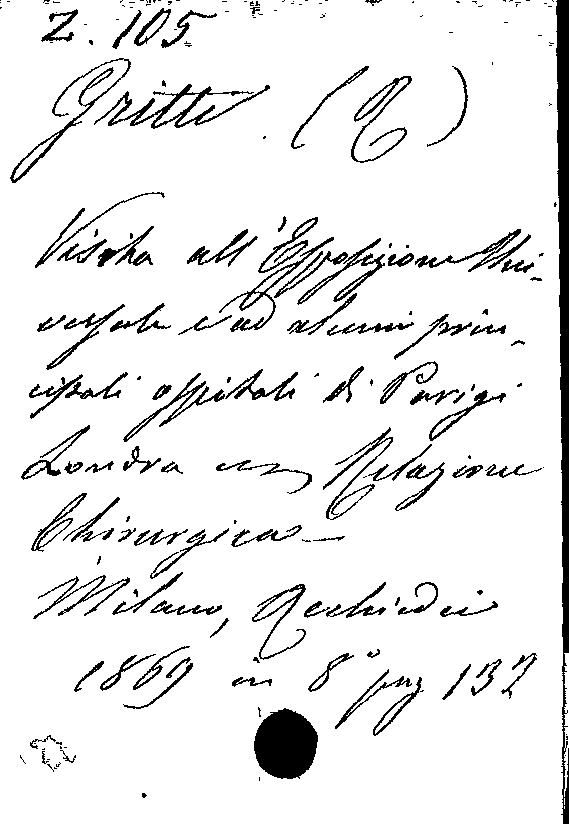 Z. 105
Gritti. (R)
Visita all'Esposizione Uni-
versale e ad alcuni prin-
cipali ospitali di Parigi
Londra Relazione
Chirurgica —
Milano, Rechiedei
1869 in 8° pag 132